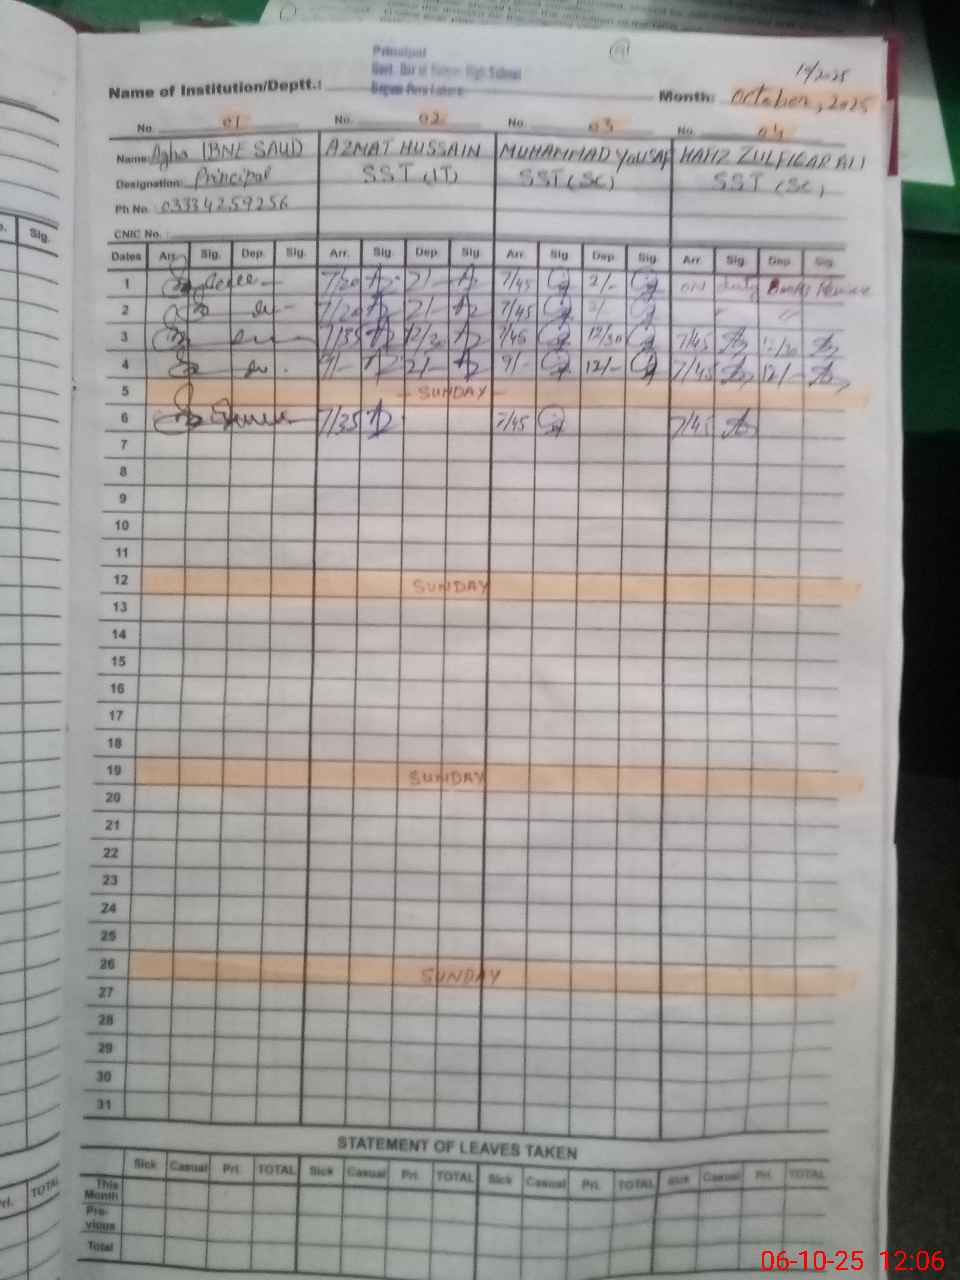 Principal
High School
10/2025
Name of Institution/Deptt.:
Month: October, 2025
No. 01 No. 02 No. 03 No. 04
Name: Agha IBNE SAUD AZMAT HUSSAIN MUHAMMAD YOUSAF HAFIZ ZULFIQAR ALI
Designation: Principal SST (IT) SST (Sc) SST (Sc)
Ph No. 03334259256
CNIC No. :
Dates Arr. Sig. Dep. Sig. Arr. Sig. Dep. Sig. Arr. Sig. Dep. Sig. Arr. Sig. Dep. Sig.
1 7/20 2/- 7/45 2/- on duty
2 7/20 2/- 7/45 2/-
3 7/35 12/30 7/45 12/30 7/45 12/30
4 9/- 2/- 9/- 12/- 7/45 12/-
5 - SUNDAY -
6 7/35 7/45 7/45
7
8
9
10
11
12 SUNDAY
13
14
15
16
17
18
19 SUNDAY
20
21
22
23
24
25
26 SUNDAY
27
28
29
30
31
STATEMENT OF LEAVES TAKEN
Sick Casual Pri. TOTAL Sick Casual Pri. TOTAL Sick Casual Pri. TOTAL Sick Casual Pri. TOTAL
This Month
Pre-vious
Total
Sig.
TOTAL
06-10-25 12:06